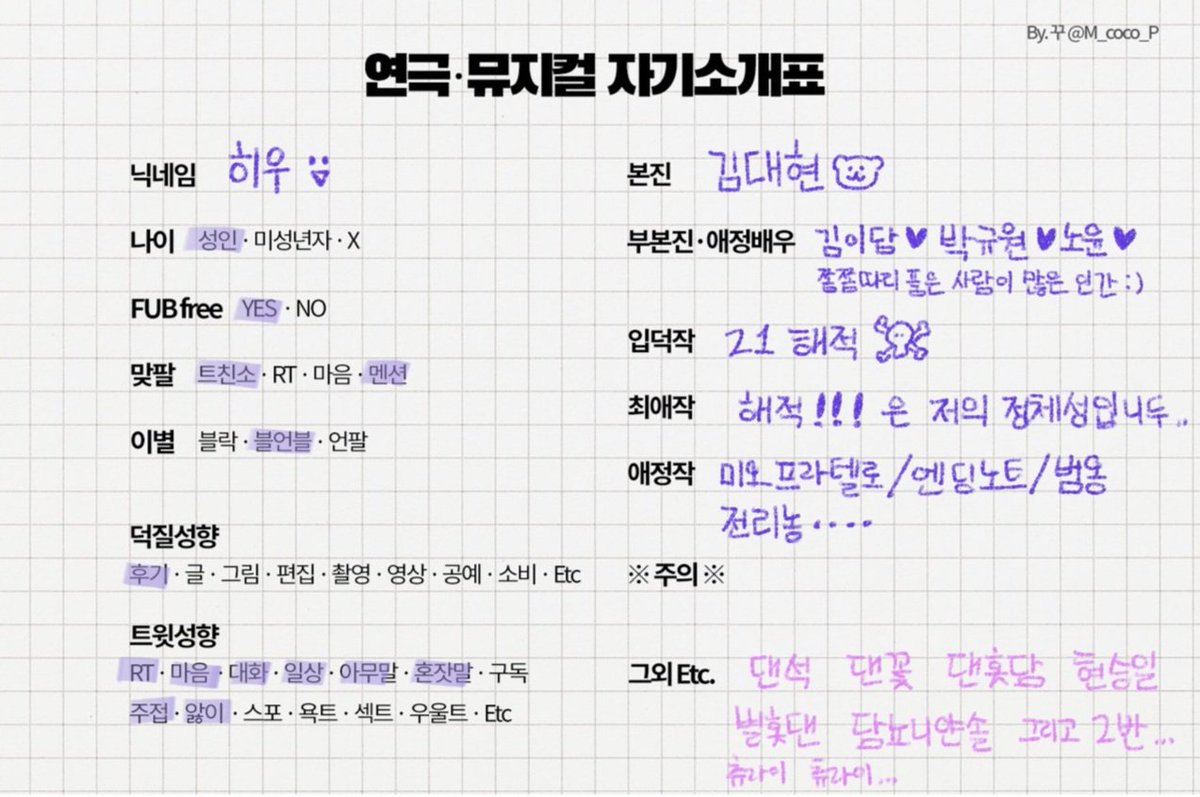 By. 꾸@M_coco_P
연극·뮤지컬 자기소개표
닉네임 히우
나이 성인 · 미성년자 · X
FUB free YES · NO
맞팔 트친소 · RT · 마음 · 멘션
이별 블락 · 블언블 · 언팔
덕질성향
후기 · 글 · 그림 · 편집 · 촬영 · 영상 · 공예 · 소비 · Etc
트윗성향
RT · 마음 · 대화 · 일상 · 아무말 · 혼잣말 · 구독
주접 · 앓이 · 스포 · 욕트 · 섹트 · 우울트 · Etc
본진 김대현
부본진·애정배우 김이담 ♥ 박규원 ♥ 노윤 ♥
쫄쫄따리 풀은 사람이 많은 인간 :)
입덕작 21 해적
최애작 해적!!! 은 저의 정체성입니두..
애정작 미오프라텔로/엔딩노트/범옹
전리농....
※ 주의 ※
그외 Etc. 댄석 댄꽃 댄홋담 현승일
벌홋댄 담뇨니얀솔 그리고 2반...
츄라이 츄라이...